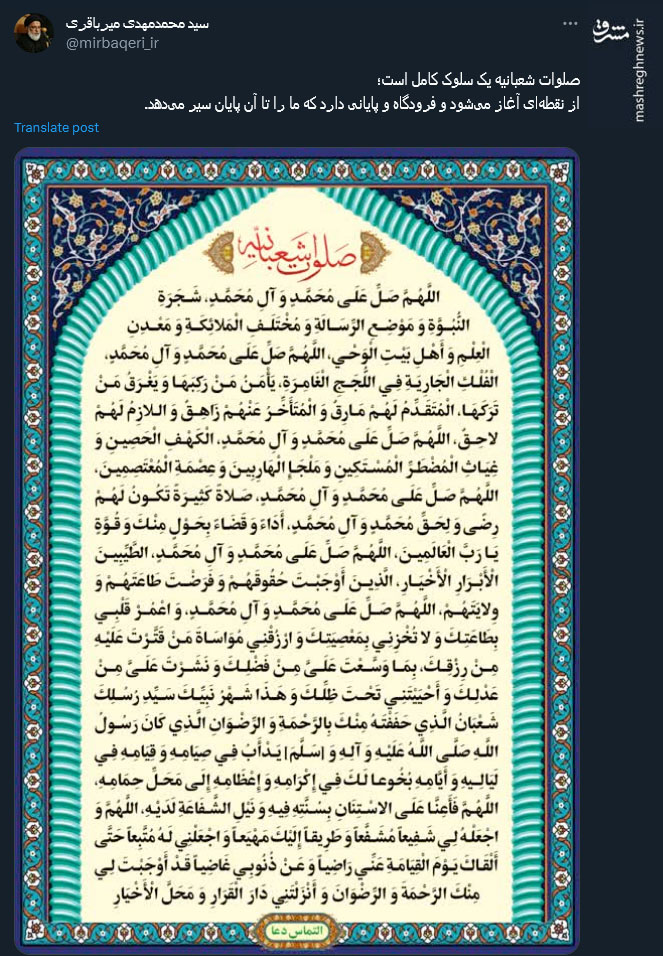 سید محمدمهدی میرباقری
@mirbaqeri_ir
مشرق
mashreghnews.ir
صلوات شعبانیه یک سلوک کامل است؛
از نقطه‌ای آغاز می‌شود و فرودگاه و پایانی دارد که ما را تا آن پایان سیر می‌دهد.
Translate post
صلوات شعبانیه
اللَّهُمَّ صَلِّ عَلَى مُحَمَّدٍ وَ آلِ مُحَمَّدٍ، شَجَرَةِ
النُّبُوَّةِ وَ مَوْضِعِ الرِّسَالَةِ وَ مُخْتَلَفِ الْمَلائِكَةِ وَ مَعْدِنِ
الْعِلْمِ وَ أَهْلِ بَيْتِ الْوَحْيِ، اللَّهُمَّ صَلِّ عَلَى مُحَمَّدٍ وَ آلِ مُحَمَّدٍ،
الْفُلْكِ الْجَارِيَةِ فِي اللُّجَجِ الْغَامِرَةِ، يَأْمَنُ مَنْ رَكِبَهَا وَ يَغْرَقُ مَنْ
تَرَكَهَا، الْمُتَقَدِّمُ لَهُمْ مَارِقٌ وَ الْمُتَأَخِّرُ عَنْهُمْ زَاهِقٌ وَ اللازِمُ لَهُمْ
لاحِقٌ، اللَّهُمَّ صَلِّ عَلَى مُحَمَّدٍ وَ آلِ مُحَمَّدٍ، الْكَهْفِ الْحَصِينِ وَ
غِيَاثِ الْمُضْطَرِّ الْمُسْتَكِينِ وَ مَلْجَإِ الْهَارِبِينَ وَ عِصْمَةِ الْمُعْتَصِمِينَ،
اللَّهُمَّ صَلِّ عَلَى مُحَمَّدٍ وَ آلِ مُحَمَّدٍ، صَلاةً كَثِيرَةً تَكُونُ لَهُمْ
رِضًى وَ لِحَقِّ مُحَمَّدٍ وَ آلِ مُحَمَّدٍ، أَدَاءً وَ قَضَاءً بِحَوْلٍ مِنْكَ وَ قُوَّةٍ
يَا رَبَّ الْعَالَمِينَ، اللَّهُمَّ صَلِّ عَلَى مُحَمَّدٍ وَ آلِ مُحَمَّدٍ، الطَّيِّبِينَ
الْأَبْرَارِ الْأَخْيَارِ، الَّذِينَ أَوْجَبْتَ حُقُوقَهُمْ وَ فَرَضْتَ طَاعَتَهُمْ وَ
وِلايَتَهُمْ، اللَّهُمَّ صَلِّ عَلَى مُحَمَّدٍ وَ آلِ مُحَمَّدٍ، وَ اعْمُرْ قَلْبِي
بِطَاعَتِكَ وَ لا تُخْزِنِي بِمَعْصِيَتِكَ وَ ارْزُقْنِي مُوَاسَاةَ مَنْ قَتَّرْتَ عَلَيْهِ
مِنْ رِزْقِكَ، بِمَا وَسَّعْتَ عَلَيَّ مِنْ فَضْلِكَ وَ نَشَرْتَ عَلَيَّ مِنْ
عَدْلِكَ وَ أَحْيَيْتَنِي تَحْتَ ظِلِّكَ وَ هَذَا شَهْرُ نَبِيِّكَ سَيِّدِ رُسُلِكَ
شَعْبَانُ الَّذِي حَفَفْتَهُ مِنْكَ بِالرَّحْمَةِ وَ الرِّضْوَانِ الَّذِي كَانَ رَسُولُ
اللَّهِ صَلَّى اللَّهُ عَلَيْهِ وَ آلِهِ وَ [سَلَّمَ] يَدْأَبُ فِي صِيَامِهِ وَ قِيَامِهِ فِي
لَيَالِيهِ وَ أَيَّامِهِ بُخُوعا لَكَ فِي إِكْرَامِهِ وَ إِعْظَامِهِ إِلَى مَحَلِّ حِمَامِهِ،
اللَّهُمَّ فَأَعِنَّا عَلَى الاسْتِنَانِ بِسُنَّتِهِ فِيهِ وَ نَيْلِ الشَّفَاعَةِ لَدَيْهِ، اللَّهُمَّ وَ
اجْعَلْهُ لِي شَفِيعاً مُشَفَّعاً وَ طَرِيقاً إِلَيْكَ مَهْيَعاً وَ اجْعَلْنِي لَهُ مُتَّبِعاً حَتَّى
أَلْقَاكَ يَوْمَ الْقِيَامَةِ عَنِّي رَاضِياً وَ عَنْ ذُنُوبِي غَاضِياً قَدْ أَوْجَبْتَ لِي
مِنْكَ الرَّحْمَةَ وَ الرِّضْوَانَ وَ أَنْزَلْتَنِي دَارَ الْقَرَارِ وَ مَحَلَّ الْأَخْيَارِ
التماس دعا